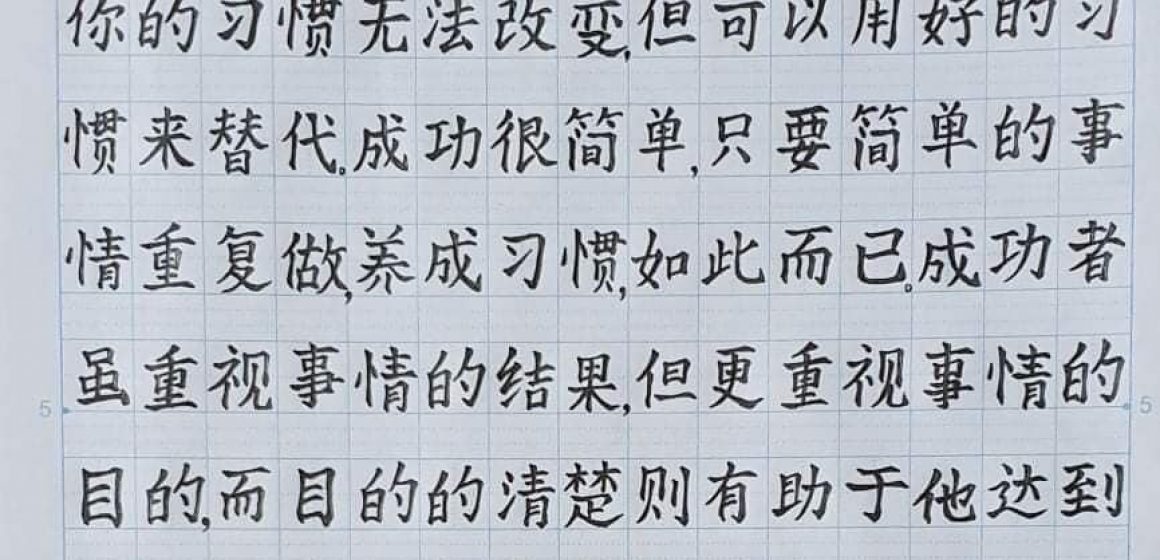 你的习惯无法改变,但可以用好的习
惯来替代。成功很简单,只要简单的事
情重复做,养成习惯,如此而已。成功者
虽重视事情的结果,但更重视事情的
5 5
目的,而目的的清楚则有助于他达到